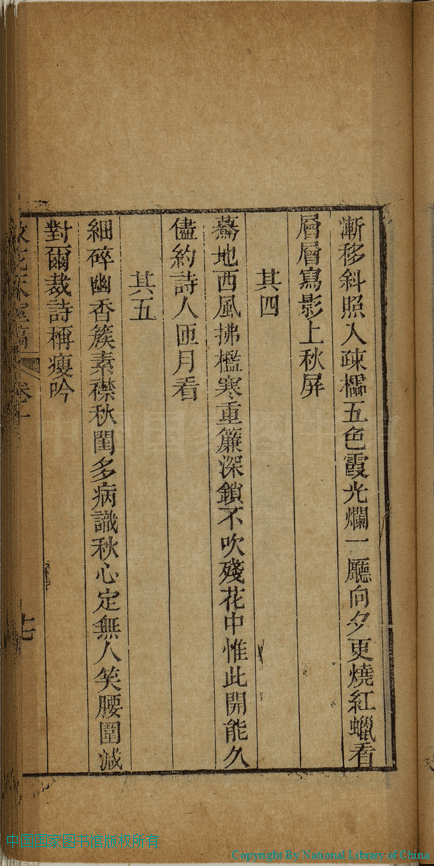 漸移斜照入疎櫺五色霞光爛一廳向夕更燒紅蠟看
層層寫影上秋屏
其四
驀地西風拂檻寒重簾深鎖不吹殘花中惟此開能久
儘約詩人匝月看
其五
細碎幽香簇素襟秋閨多病識秋心定無人笑腰圍減
對爾裁詩稱瘦吟
卷十
十七
Copyright By National Library of China